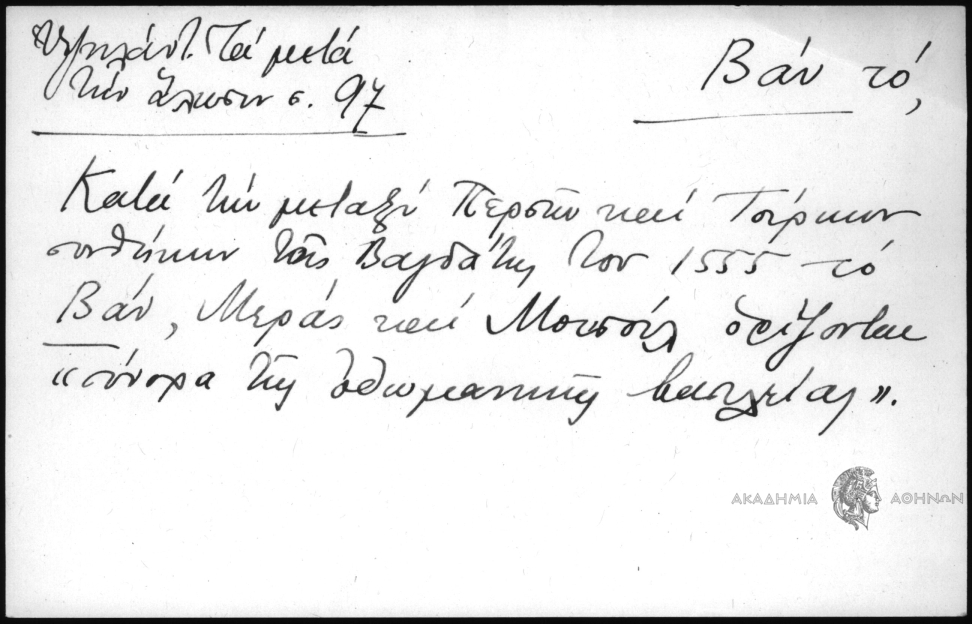 Ὑψηλάντ. Τά μετά
τήν ἅλωσιν σ. 97
Βάν τό,
Κατά τήν μεταξύ Περσῶν καί Τούρκων
συνθήκην τῆς Βαγδάτης τοῦ 1555 τό
Βάν, Μεράς καί Μουσούλ ὁρίζονται
«σύνορα τῆς ὀθωμανικῆς βασιλείας».
ΑΚΑΔΗΜΙΑ ΑΘΗΝΩΝ